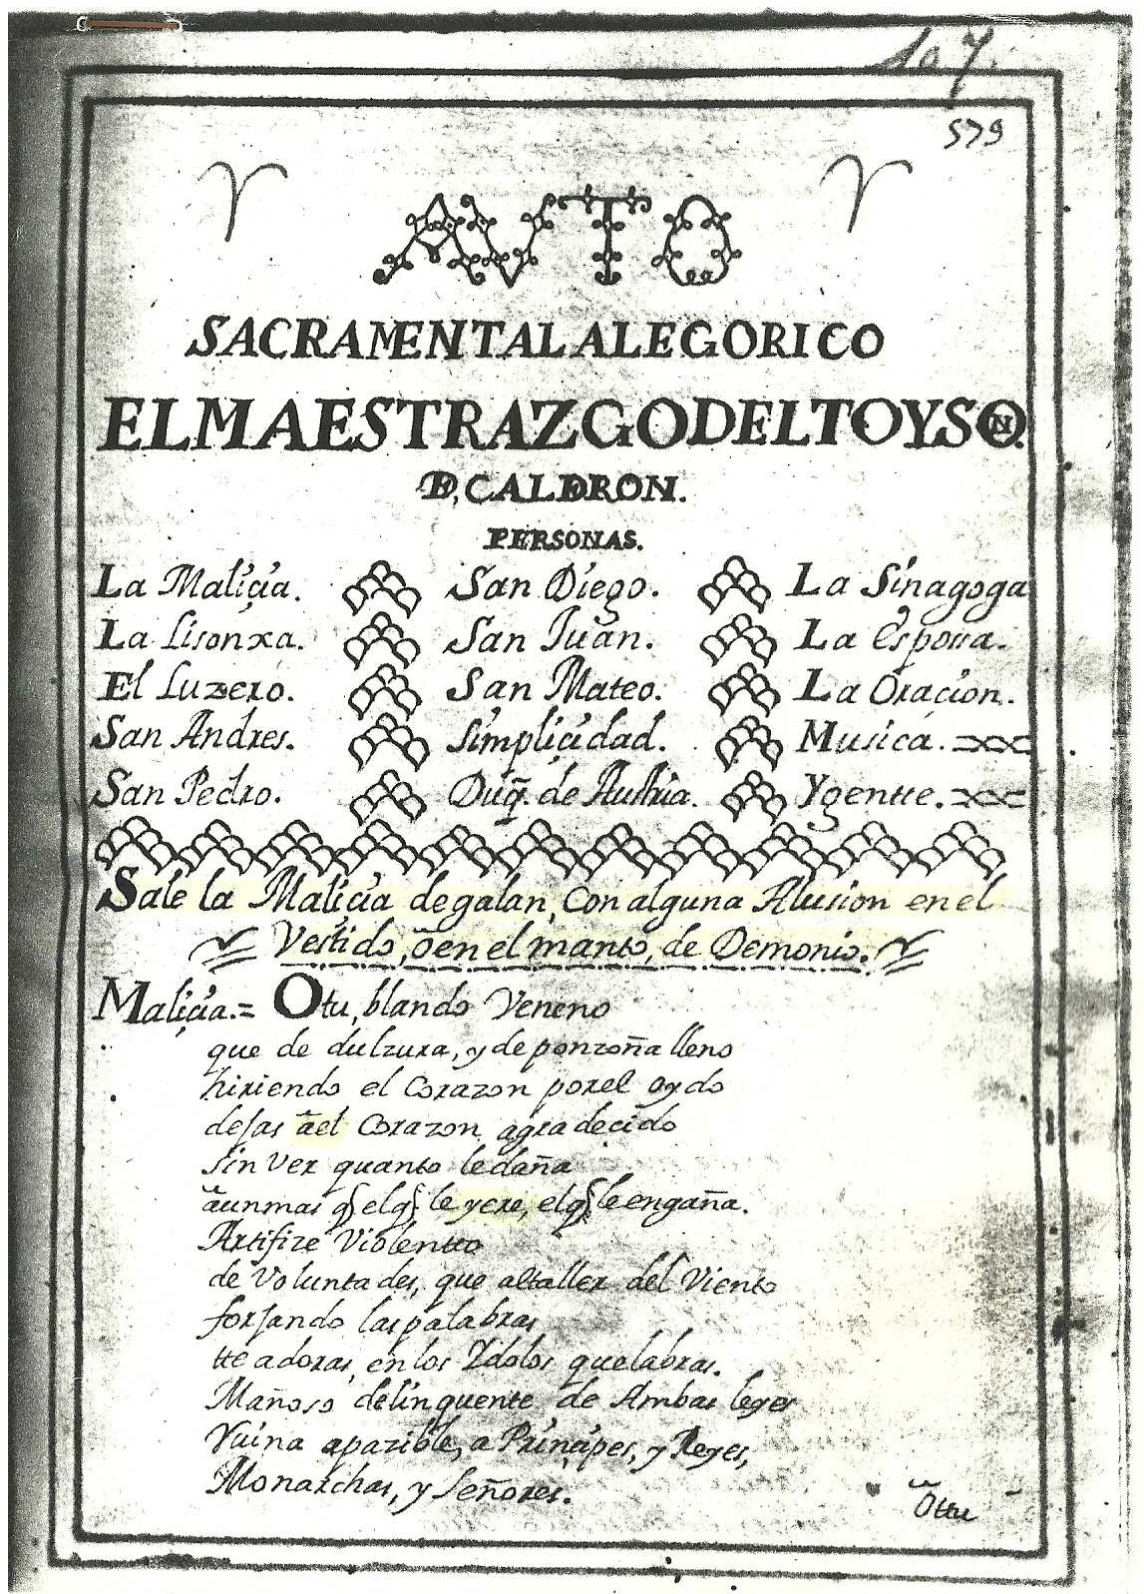 107.
579
AVTO
SACRAMENTAL ALEGORICO
EL MAESTRAZGO DEL TOYSON.
DE CALDERON.
PERSONAS.
La Maliçia. San Diego. La Sinagoga
La Lisonxa. San Juan. La Esposa.
El Luzero. San Mateo. La Oraçion.
San Andres. Simpliçidad. Musica.
San Pedro. Duq̃. de Austria. Ygentte.
Sale la Maliçia de galan, Con alguna Alusion en el
Vestido, õ en el manto, de Demonio.
Maliçia.= O tu, blando Veneno
que de dulzura, y de ponzoña lleno
hiriendo el Corazon por el oydo
dejas ã el Corazon, agradecido
sin Ver quanto le daña
ãun mas q̃ el q̃ le yere, el q̃ le engaña.
Artifize Violentto
de Voluntades, que al taller del Viento
forjando las palabras
tte adoras, en los Ydolos que labras.
Mañoso delinquente de Ambas leyes
Ruina apazible, a Prinçipes, y Reyes,
Monarchas, y Señores.
Õ ttu